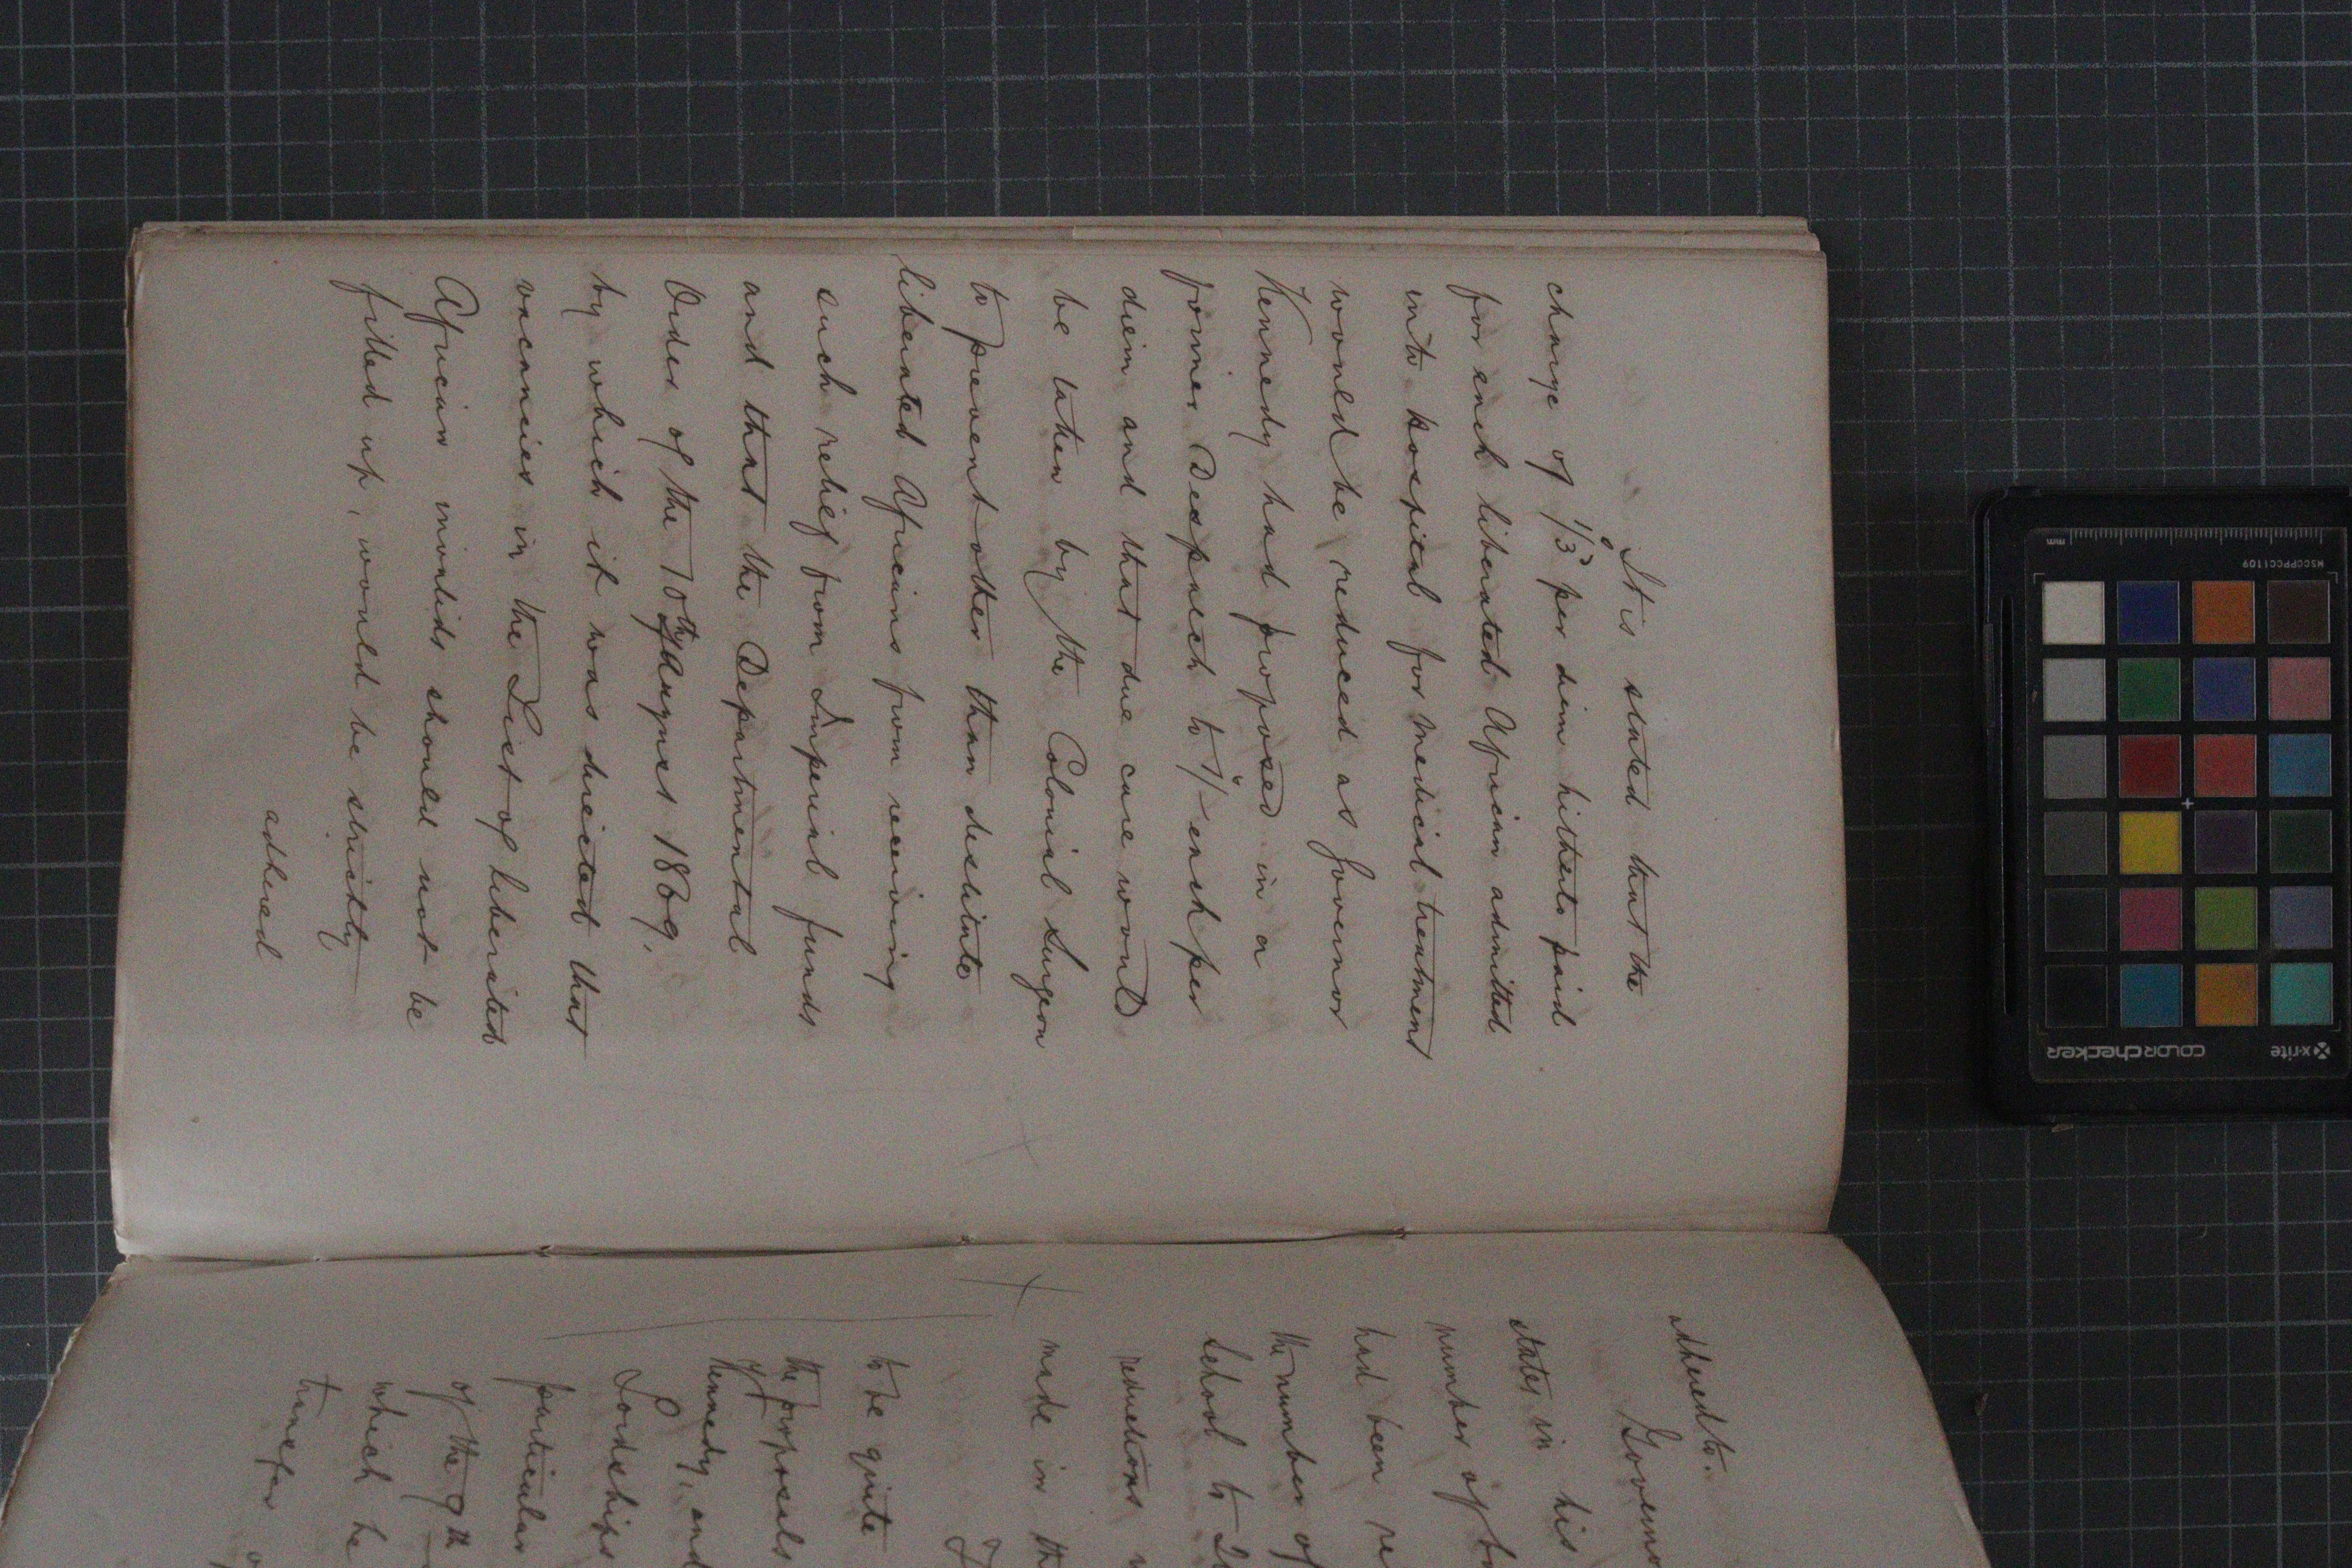 It is stated that the
charge of 1/3 per diem hitherto paid
for each liberated African admitted
into hospital for medical treatment
would be reduced as Governor
Kennedy had proposed in a
former Despatch to 1/- each per
diem and that due care would
be taken by the Colonial Surgeon
to prevent other than destitute
liberated Africans from receiving
such relief from Imperial funds
and that the Departmental
Order of the 10th August 1869,
by which it was directed that
vacancies in the List of liberated
African invalids should not be
filled up, would be strictly
adhered
adhered to.
Governo
states in his
number of bo
had been re
the number of
School to 20
reductions
made in th
to be quite
the proposals
of
Kennedy, and
Lordships
particular
of the 9th
which he
transfer
x-rite
colorchecker
MSCCPPCC1109
mm